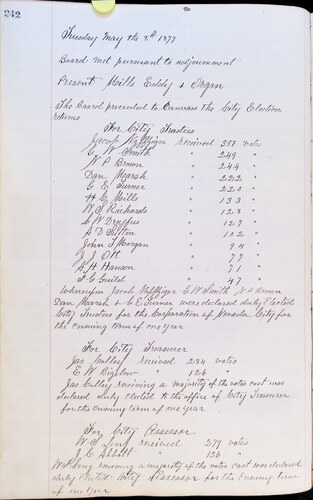 242
Tuesday May the 8th 1877
Board met pursuant to adjournment
Present Mills Eddy & Organ
The Board proceeded to Canvass the City Election
returns
For City Trustees
Jacob Naffziger received 351 votes
G W Smith " 249 "
N P Brown " 244 "
Dan Marsh " 222 "
C E Turner " 220 "
H G Mills " 133 "
W S Richards " 128 "
C W " 127 "
A D " 102 "
John T Morgan " 94 "
J J Ott " 77 "
A H Hanson " 71 "
F G Guild " 47 "
Whereupon Jacob Naffziger G W Smith N P Brown
Dan Marsh & C E Turner were declared duly Elected
City Trustees for the Corporation of Nevada City for
the ensuing term of one year
For City Treasurer
Jas Colley received 284 votes
E W Bigelow " 126 "
Jas Colley receiving a majority of the votes cast was
declared duly elected to the office of City Treasurer
for the ensuing term of one year
For City Assessor
W S Long received 279 votes
J C Abbott " 136 "
W S Long receiving a majority of the votes cast was declared
duly Elected City Assessor for the Ensuing term
of one year